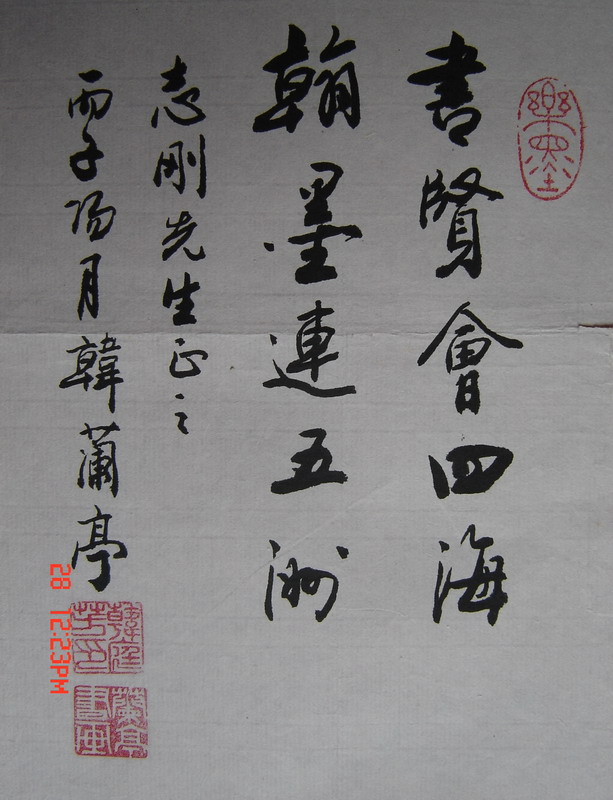 書賢會四海
翰墨連五洲
志剛先生正之
丙子陽月韓蘭亭
樂墨
28 12:23PM